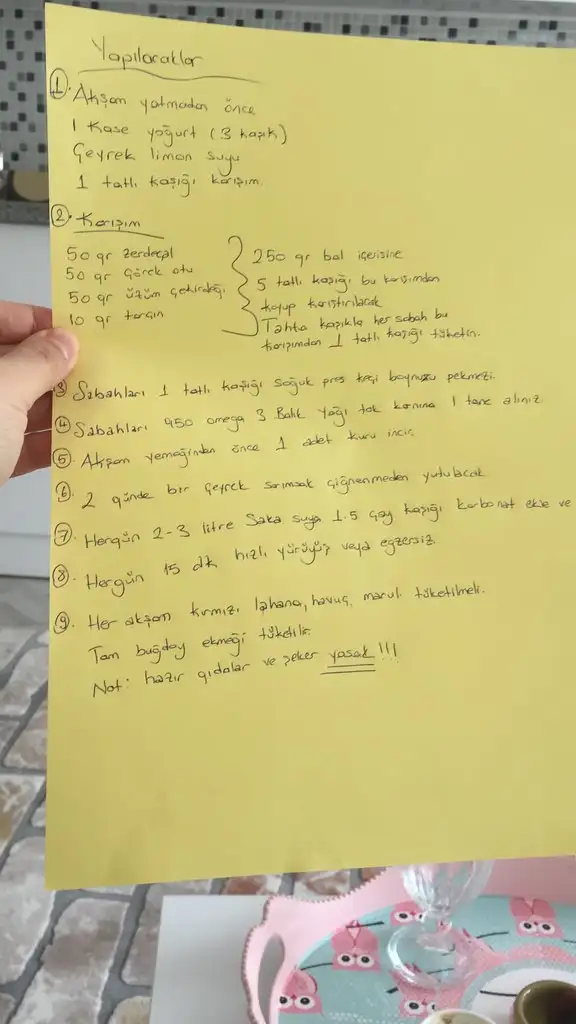 Yapılacaklar
1. Akşam yatmadan önce
1 kase yoğurt (3 kaşık)
Çeyrek limon suyu
1 tatlı kaşığı karışım.
2. Karışım
50 gr zerdeçal
50 gr çörek otu
50 gr üzüm çekirdeği
10 gr tarçın
250 gr bal içerisine
5 tatlı kaşığı bu karışımdan
koyup karıştırılacak
Tahta kaşıkla her sabah bu
karışımdan 1 tatlı kaşığı tüketin.
3 Sabahları 1 tatlı kaşığı soğuk pres keçi boynuzu pekmezi.
4 Sabahları 950 omega 3 Balık yağı tok karnına 1 tane alınız.
5. Akşam yemeğinden önce 1 adet kuru incir
6. 2 günde bir çeyrek sarımsak çiğnenmeden yutulacak
7. Hergün 2-3 litre Saka suya 1.5 çay kaşığı karbonat ekle ve
8. Hergün 15 dk hızlı yürüyüş veya egzersiz.
9. Her akşam kırmızı lahana, havuç, marul tüketilmeli.
Tam buğday ekmeği tüketilir.
Not: hazır gıdalar ve şeker yasak!!!